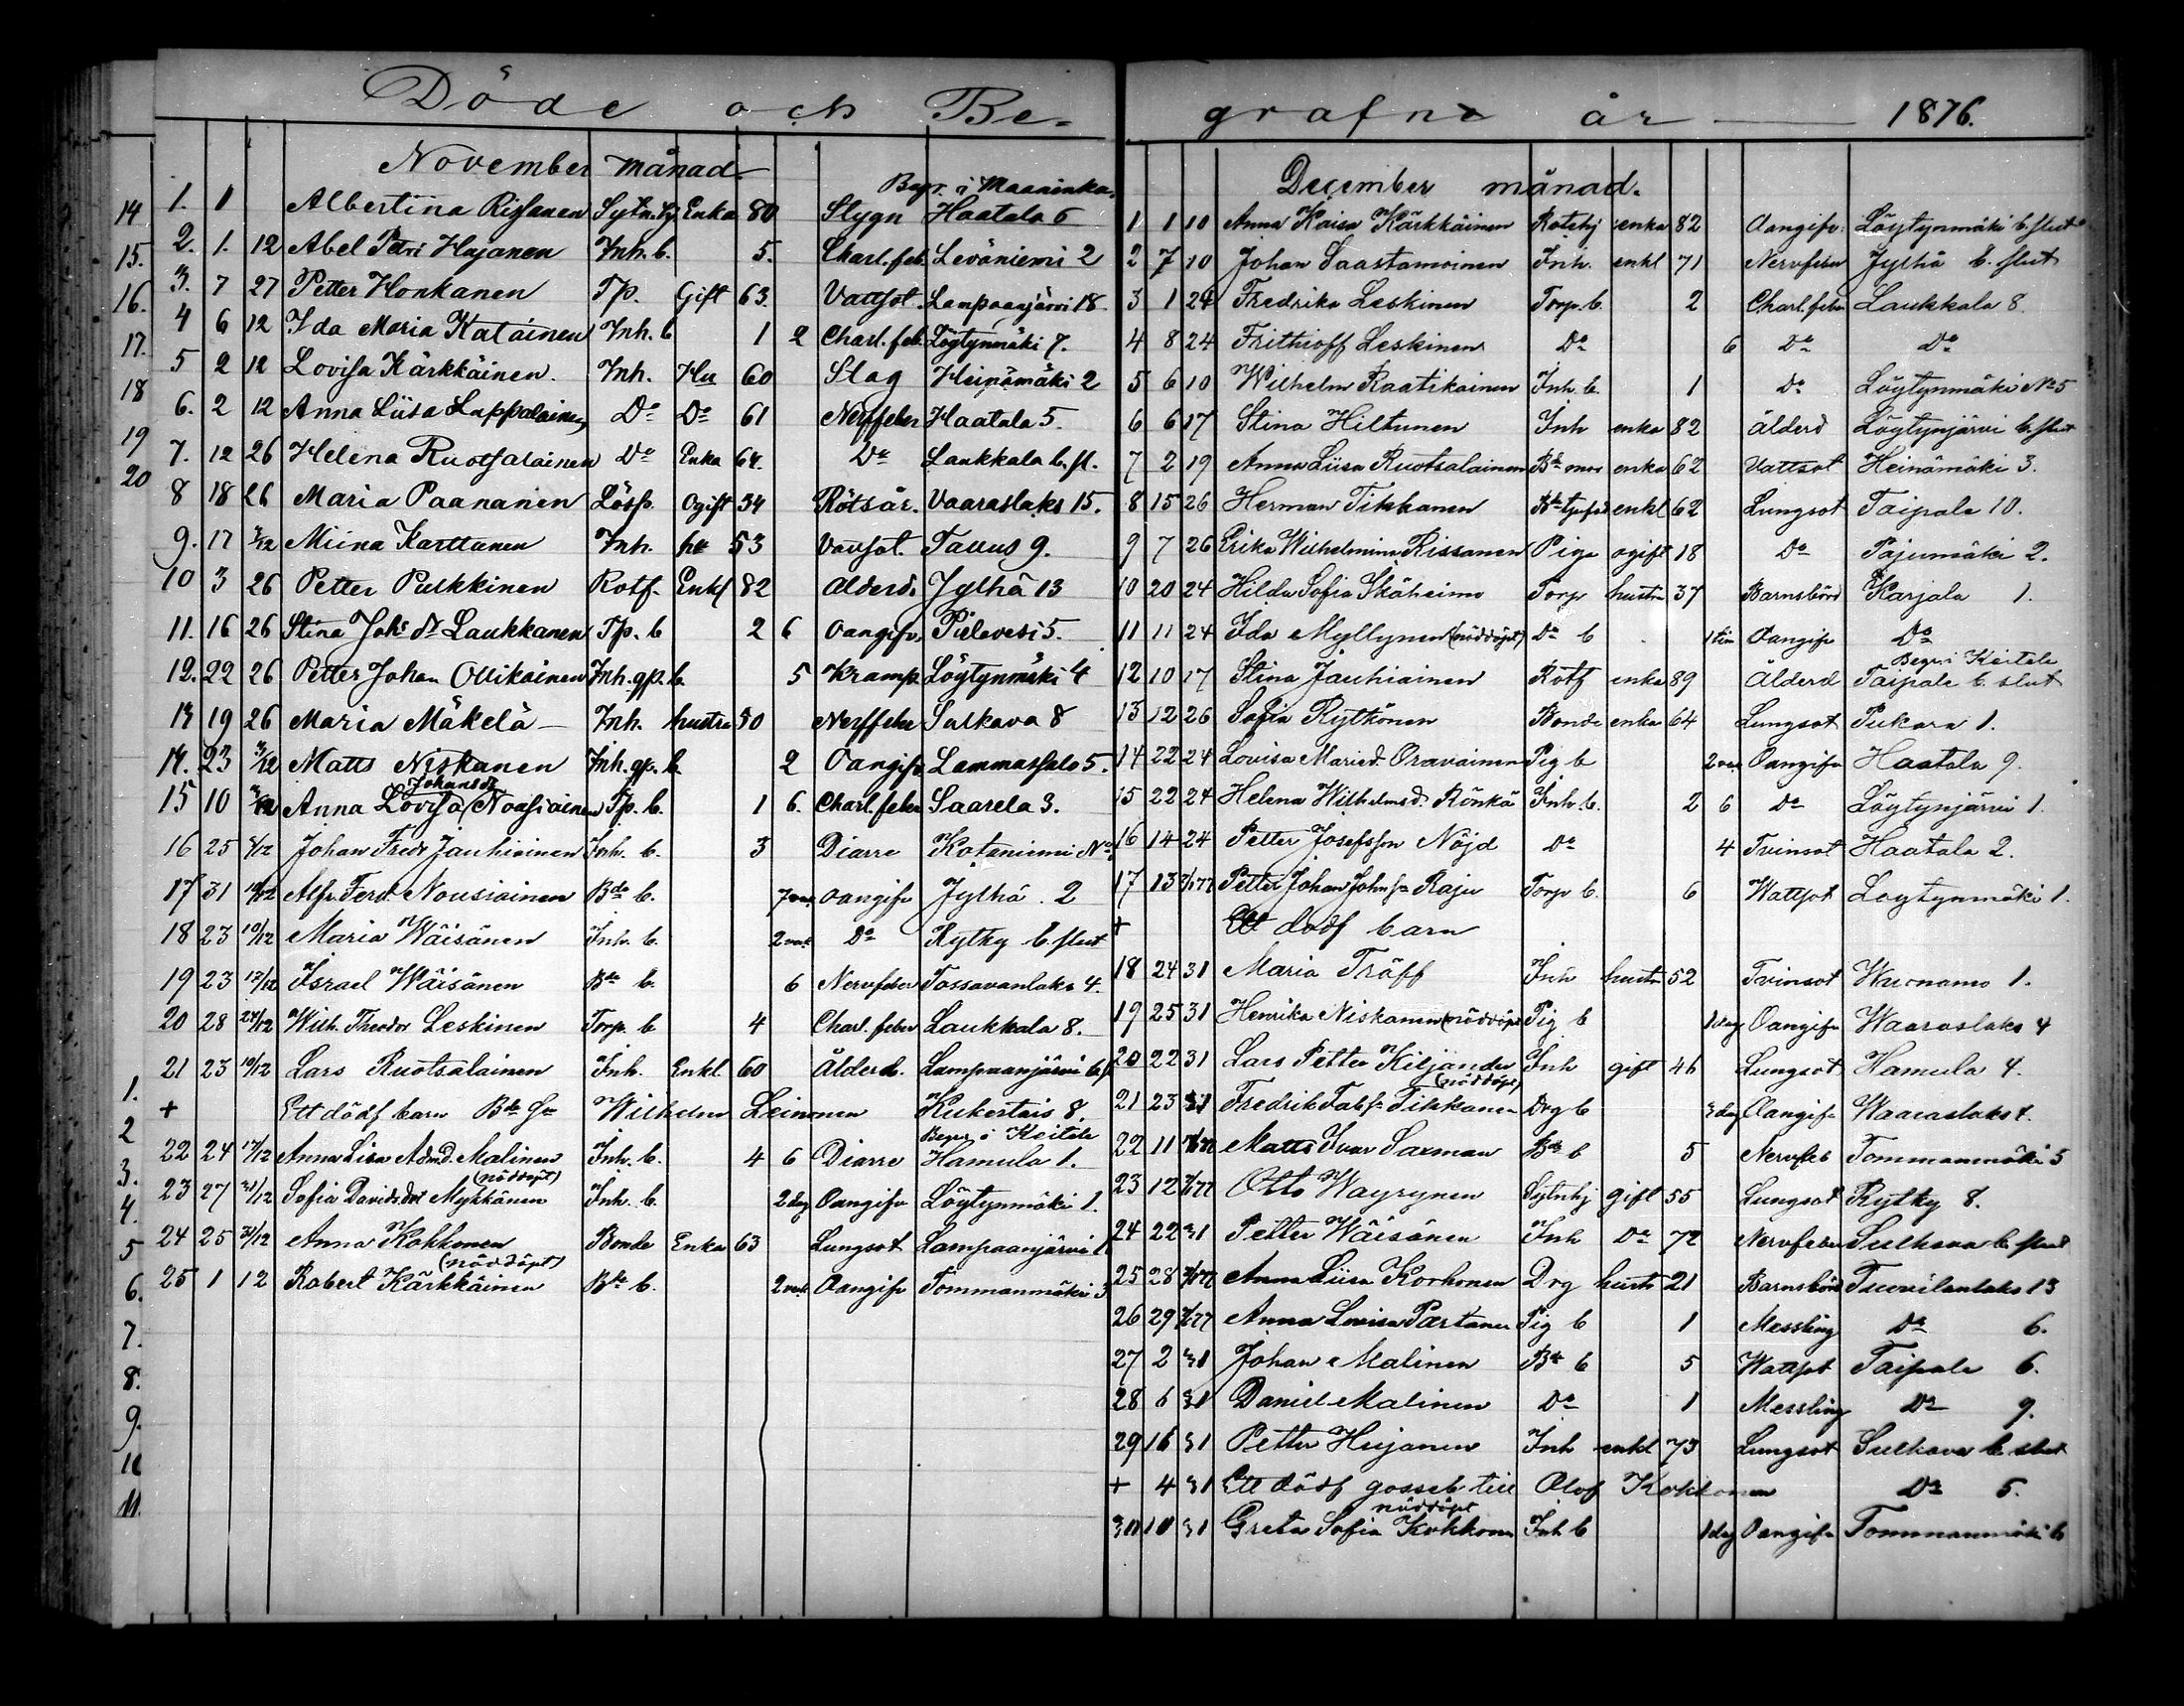 Döde och Be-
November månad
Begr. i Maaninka.
1. 1 Albertina Rissanen Enka 80 Slygn Haatala 6
2. 1. 12 Abel Petri Hujanen Inh. b. 5. Charl. feb. Leväniemi 2
3. 7 27 Petter Honkanen Tp. Gift 63. Vattsot. Lampaanjärvi 18
4 6 12 Ida Maria Katainen Inh. b 1 2 Charl. feb. Löytynmäki 7.
5 2 12 Lovisa Kärkkäinen. Inh. Hu 60 Slag Heinämäki 2
6. 2 12 Anna Liisa Lappalainen Do Do 61 Nerffeber Haatala 5.
7. 12 26 Helena Ruotsalainen Do Enka 64. Do Laukkala b. sl.
8 18 26 Maria Paananen Lösp. Ogift 34 Rötsår. Vaaraslaks 15.
9. 17 3/12 Miina Karttunen Inh. hu 53 Tavus 9.
10 3 26 Petter Pulkkinen Rotf. Enkl 82 Ålderd. Jylhä 13
11. 16 26 Stina Johs dr Laukkanen Tp. b 2 6 Oangifv. Pielavesi 5.
12. 22 26 Petter Johan Ollikainen Inh. gp. b. 5 Kramp. Löytynmäki 4
13 19 26 Maria Mäkelä Inh. hustru 50 Nerffeber Sulkava 8
14. 23 3/12 Matts Niskanen Inh. gp. b. 2 Oangifv Lammassalo 5.
15 10 Anna Lovisa Johansdr Nousiainen Tp. b. 1 6. Charl. feber Saarela 3.
16 25 Johan Fredr Jauhiainen Inh. b. 3 Diarre Kotaniemi No
17 31 10/12 Alfr. Ferd. Nousiainen Bde b. oangifv Jylhä. 2
18 23 10/12 Maria Wäisänen Inh. b. 2 vek Do Rytky b. slut
19 23 17/12 Israel Wäisänen Bde b. 6 Nervfeber Tossavanlaks 4.
20 28 24/12 Wilh. Theodor Leskinen Torp. b 4 Charl. feber Laukkala 8.
21 23 10/12 Lars Ruotsalainen Inh. Enkl. 60 Ålderd. Lampaanjärvi b.
+ Ett dödf barn Bde Wilhelm Leinonen Kukertais 8.
Begr. i Keitele
22 24 17/12 Anna Lisa Adamd. Malinen Inh. b. 4 6 Diarre Hamula 1.
(nöddöpt)
23 27 31/12 Sofia Davidsdotr Mykkänen Inh. b. 2 dag Oangifv Löytynmäki 1.
24 25 31/12 Anna Kokkonen Bonde Enka 63 Lungsot Lampaanjärvi
(nöddöpt)
25 1 12 Robert Kärkkäinen Bde b. 2 vek Oangifv Tommanmäki 3
14
15.
16.
17.
18
19
20
1.
2
3.
4.
5
6.
7.
8.
9.
10
11.
grafne år 1876.
December månad.
1 1 10 Anna Kaisa Kärkkäinen Rotehj enka 82 Oangifv: Löytynmäki b. slut
2 7 10 Johan Saastamoinen Inh. enkl 71 Nervfeber Jylhä b. slut
3 1 24 Fredrika Leskinen Torp. b. 2 Charl. feber Laukkala 8.
4 8 24 Frithioff Leskinen Do 6 Do Do
5 6 10 Wilhelm Raatikainen Inh. b. 1 Do Löytynmäki No 5
6 6 17 Stina Hiltunen Inh enka 82 Ålderd Löytynjärvi b. slut
7 2 19 Anna Liisa Ruotsalainen Bde mor enka 62 Vattsot Heinämäki 3.
8 15 26 Herman Tikkanen enkl 62 Lungsot Taipale 10.
9 7 26 Erika Wilhelmina Rissanen Piga ogift 18 Do Pajumäki 2.
10 20 24 Hilda Sofia Torp hustru 37 Barnsbörd Karjala 1.
11 11 24 Ida Myllynen (nöddöpt) Do b 1 tim Oangifv Do
Begr. i Keitele
12 10 17 Stina Jauhiainen Rotf enka 89 Ålderd Taipale b. slut
13 12 26 Sofia Rytkönen Bonde enka 64 Lungsot Pukara 1.
14 22 24 Lovisa Maried. Oravainen Pig b 2 vek Oangifv Haatala 9.
15 22 24 Helena Wilhelmsd. Rönkä Inh b. 2 6 Do Löytynjärvi 1.
16 14 24 Petter Josefsson Nöjd Do 4 Tvinsot Haatala 2.
17 13 Petter Johan Johnsn Raju Torp b. 6 Wattsot Löytynmäki 1.
+ Ett dödf barn
18 24 31 Maria Träff Inh hustru 52 Tvinsot 1.
19 25 31 Henrika Niskanen (nöddöpt Pig b 1 dag Oangifv Waaraslaks 4
20 22 31 Lars Petter Kiljander Inh gift 46 Lungsot Hamula 4.
(nöddöpt)
21 23 31 Fredrik Tikkanen Drg b 3 dag Oangifv Waaraslaks 1.
22 11 Matts Ivar Saxman Bde b 5 Nervfeb Tommanmäki 5
23 12 Otto Wäyrynen Sytnhj gift 55 Lungsot Rytky 8.
24 22 31 Petter Wäisänen Inh Do 72 Nervfeber Sulkava b. slut
25 28 Anna Liisa Korhonen Drg hustr 21 Barnsbörd Tuovilanlaks 13
26 29 Anna Lovisa Partanen Pig b 1 Messling Do 6.
27 2 31 Johan Malinen Bde b 5 Wattsot Taipale 6.
28 6 31 Daniel Malinen Do 1 Messling Do 9.
29 16 31 Petter Hujanen Inh enkl 73 Lungsot Sulkava b. slut
+ 4 31 Ett dödf gosseb till Olof Kokkonen Do 5.
nöddöpt
30 10 31 Greta Sofia Kokkonen Inh b 1 dag Oangifv Tommanmäki 6